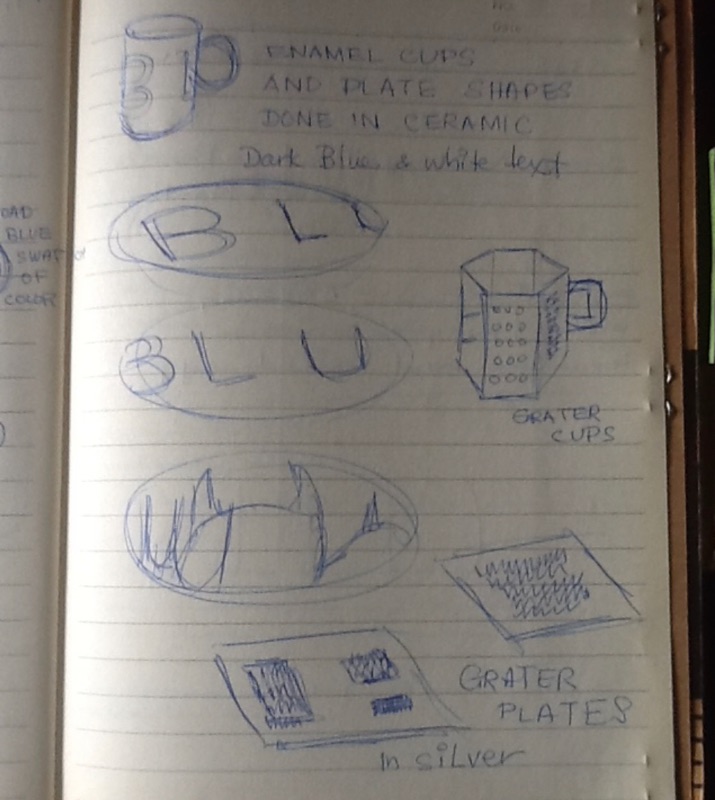 ENAMEL CUPS
AND PLATE SHAPES
DONE IN CERAMIC
Dark Blue & white text
BLUE
SWAT
OF
COLOR
B L
B L U
GRATER
CUPS
GRATER
PLATES
In SILVER